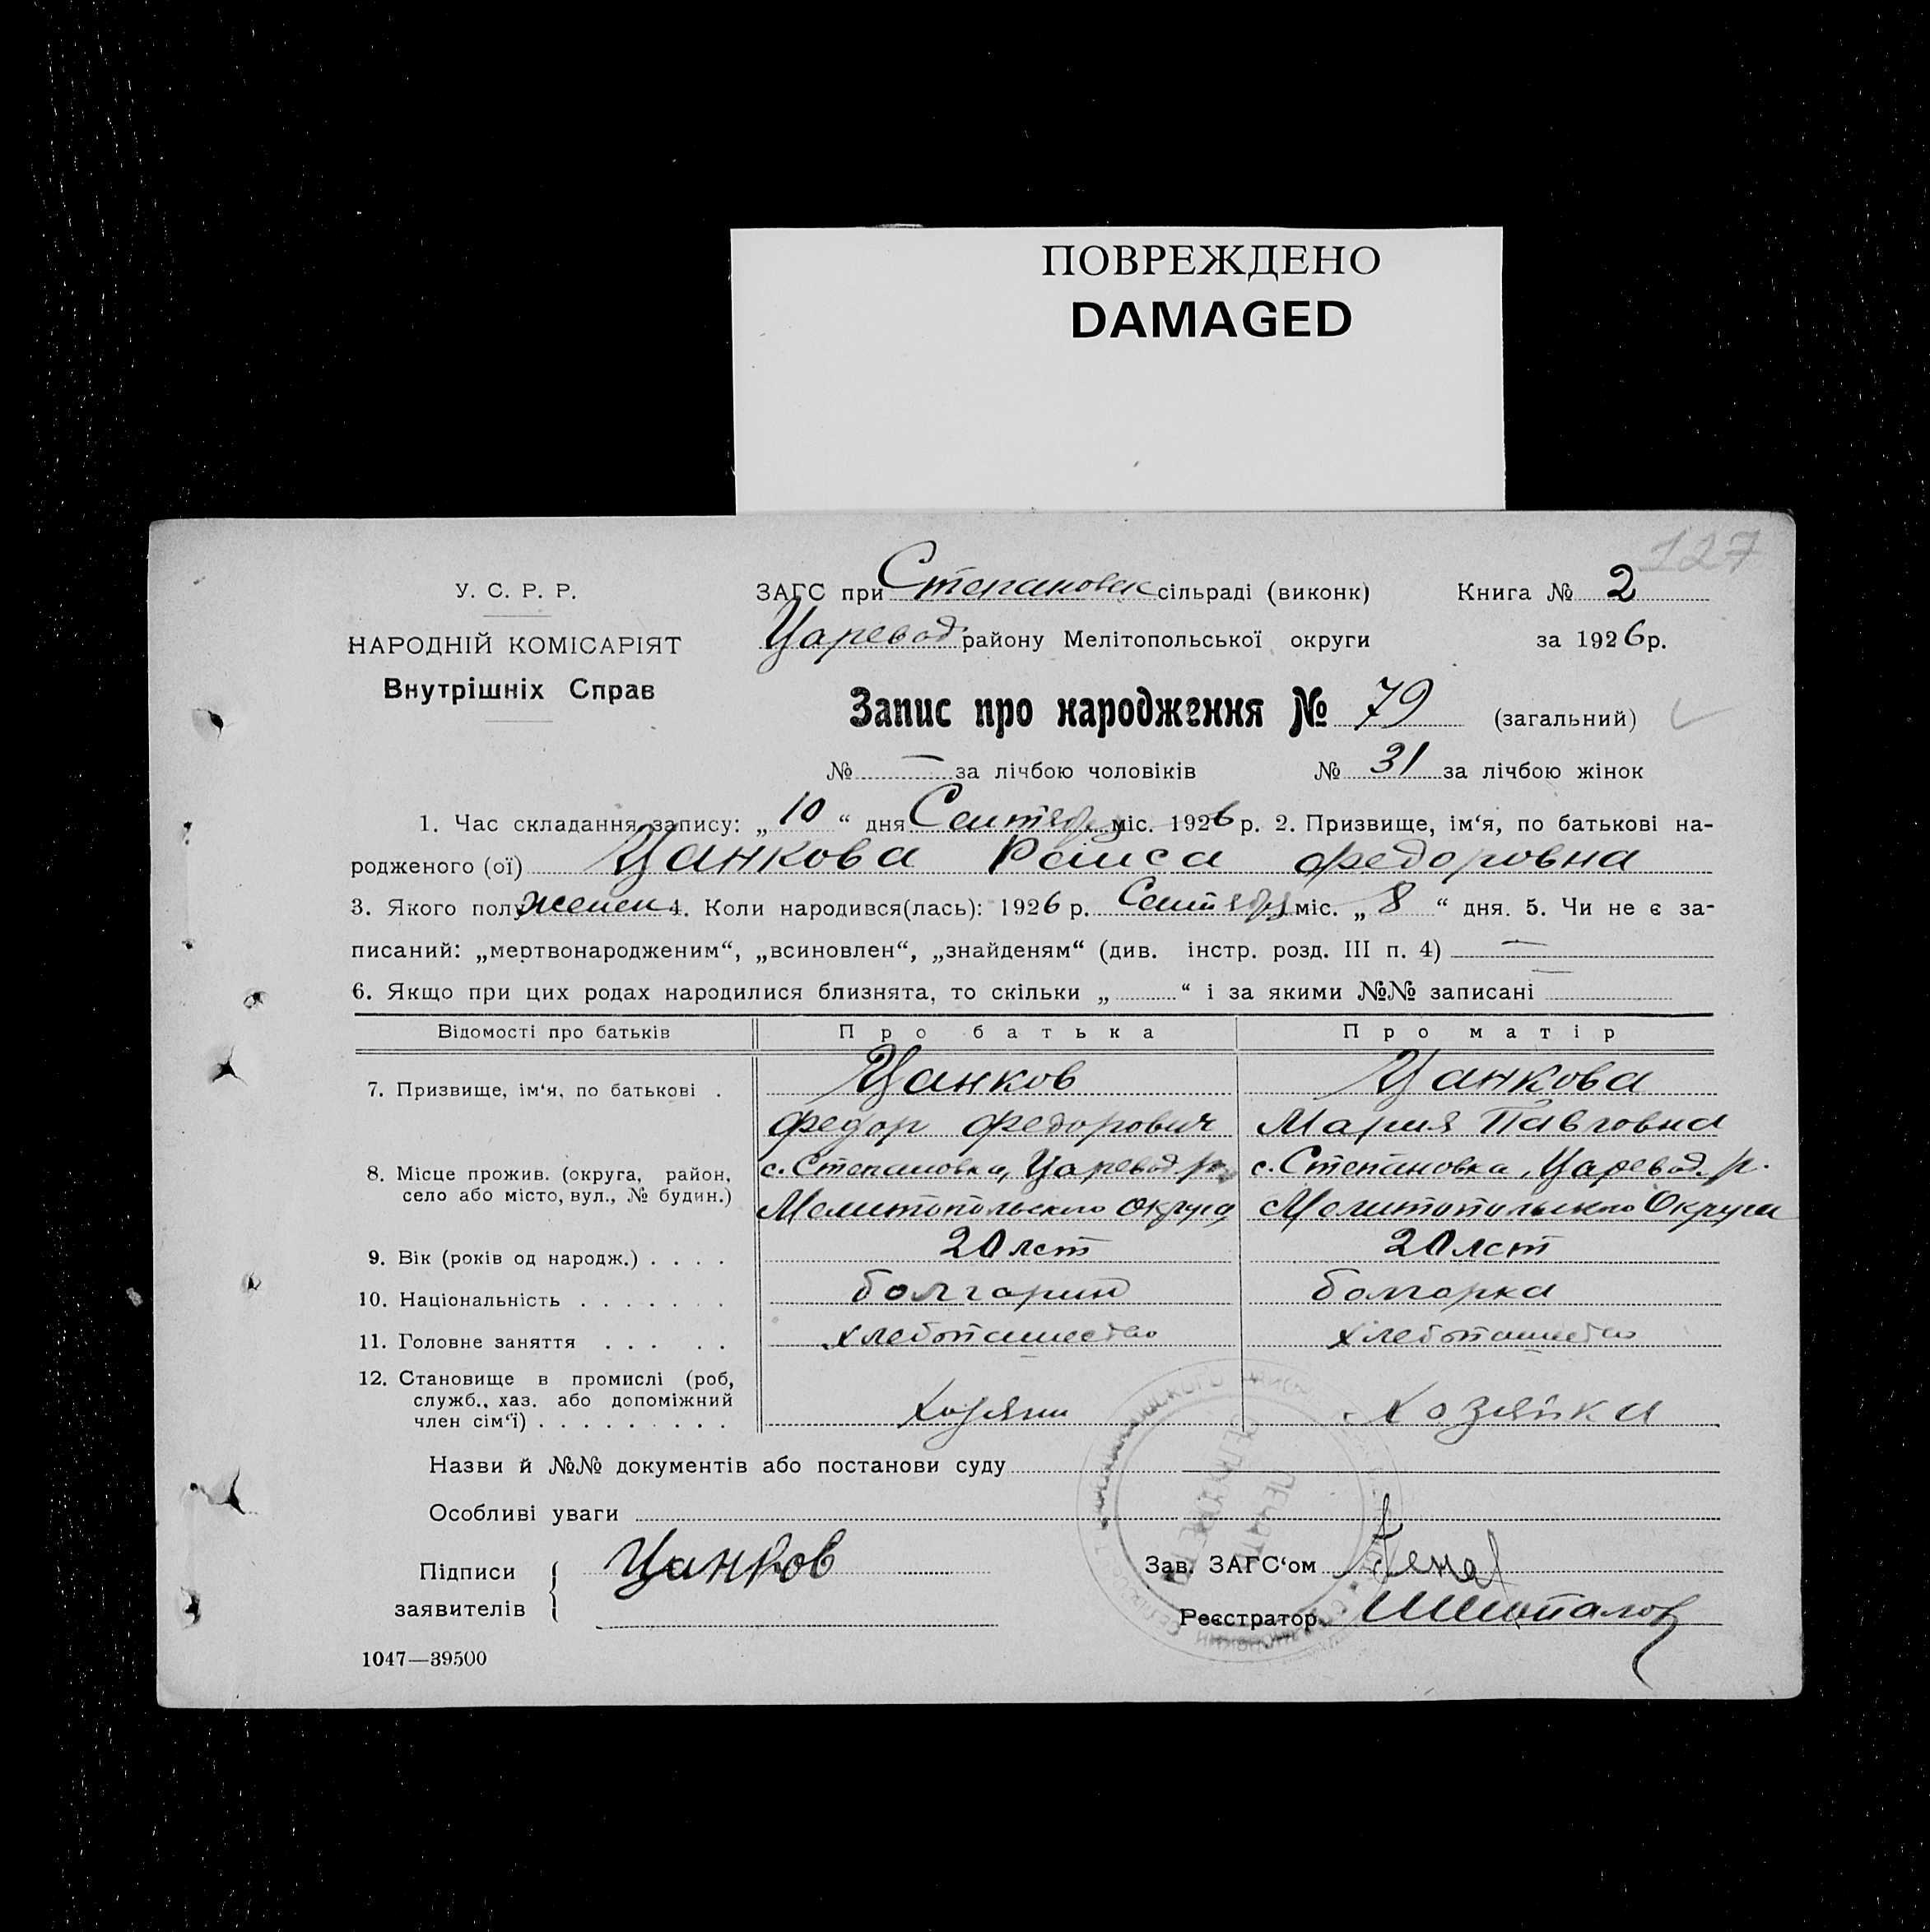 ПОВРЕЖДЕНО
DAMAGED
127
У. С. Р. Р.
ЗАГС при Степановск сільраді (виконк) Книга № 2
НАРОДНІЙ КОМІСАРІЯТ
Царевод району Мелітопольської округи за 1926 р.
Внутрішніх Справ
Запис про народження № 79 (загальний)
№ — за лічбою чоловіків № 31 за лічбою жінок
1. Час складання запису: „10“ дня Сентября міс. 1926 р. 2. Призвище, ім‘я, по батькові на-
родженого (ої) Цанкова Раиса Федоровна
3. Якого полу женск 4. Коли народився(лась): 1926 р. Сентября міс. „8“ дня. 5. Чи не є за-
писаний: „мертвонародженим“, „всиновлен“, „знайденям“ (див. інстр. розд. III п. 4) —
6. Якщо при цих родах народилися близнята, то скільки „ “ і за якими №№ записані —
Відомості про батьків Про батька Про матір
7. Призвище, ім‘я, по батькові . Цанков Цанкова
Федор Федорович Мария Павловна
8. Місце прожив. (округа, район, с. Степановка, Царевод. р. с. Степановка, Царевод. р.
село або місто, вул., № будин.) Мелитопольского Округа Мелитопольского Округа
9. Вік (років од народж.) . . . . 20 лет 20 лет
10. Національність . . . . . . . болгарин болгарка
11. Головне заняття . . . . . хлебопашество хлебопашество
12. Становище в промислі (роб,
служб., хаз. або допоміжний
член сім‘ї) . . . . . . . . . Хозяин Хозяйка
Назви й №№ документів або постанови суду
Особливі уваги
Підписи
заявителів
Цанков
Зав. ЗАГС‘ом
Реєстратор
1047—39500